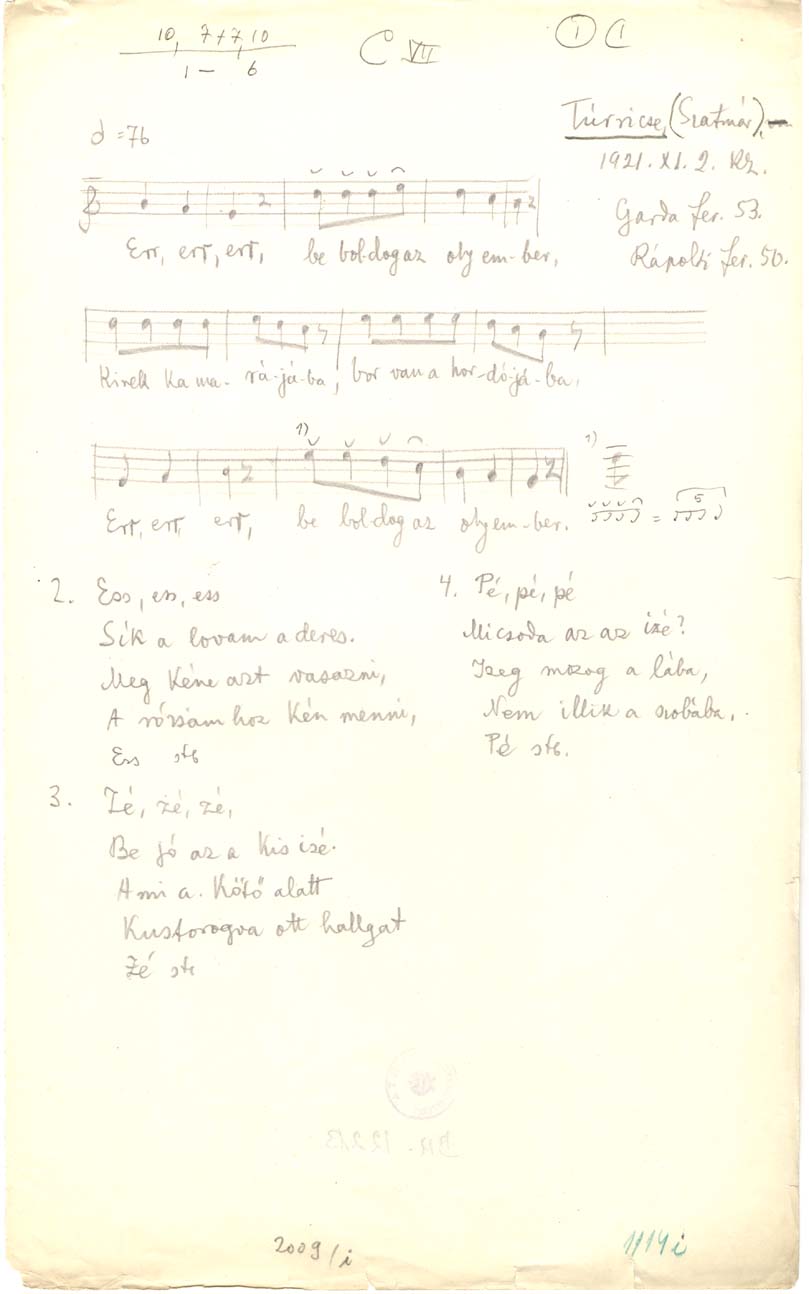 10, 7+7, 10
1 – 6
C VII
1 C
Túrricse, (Szatmár),
1921. XI. 2. Kz.
Garda fer. 53.
Rápolti fer. 50.
= 76
Err, err, err, be bol-dog az oly em-ber,
Kinek ka ma- rá-já-ba, bor van a hor-dó-já-ba,
1)
1)
Err, err, err, be bol-dog az oly em-ber.
= 5
2. Ess, ess, ess
Sík a lovam a deres.
Meg kéne azt vasazni,
A rózsámhoz kén menni,
Ess stb
3. Zé, zé, zé,
Be jó az a kis izé.
Ami a. kötő alatt
Kustorogva ott hallgat
Zé stb
4. Pé, pé, pé
Micsoda az az izé?
Izeg mozog a lába,
Nem illik a szobába,.
Pé stb.
2009/i
1114 i